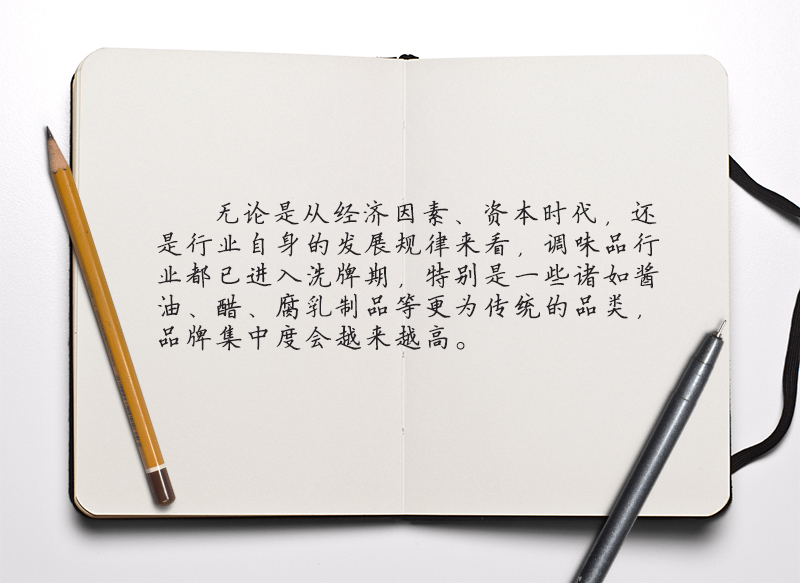 无论是从经济因素、资本时代，还
是行业自身的发展规律来看，调味品行
业都已进入洗牌期，特别是一些诸如酱
油、醋、腐乳制品等更为传统的品类，
品牌集中度会越来越高。